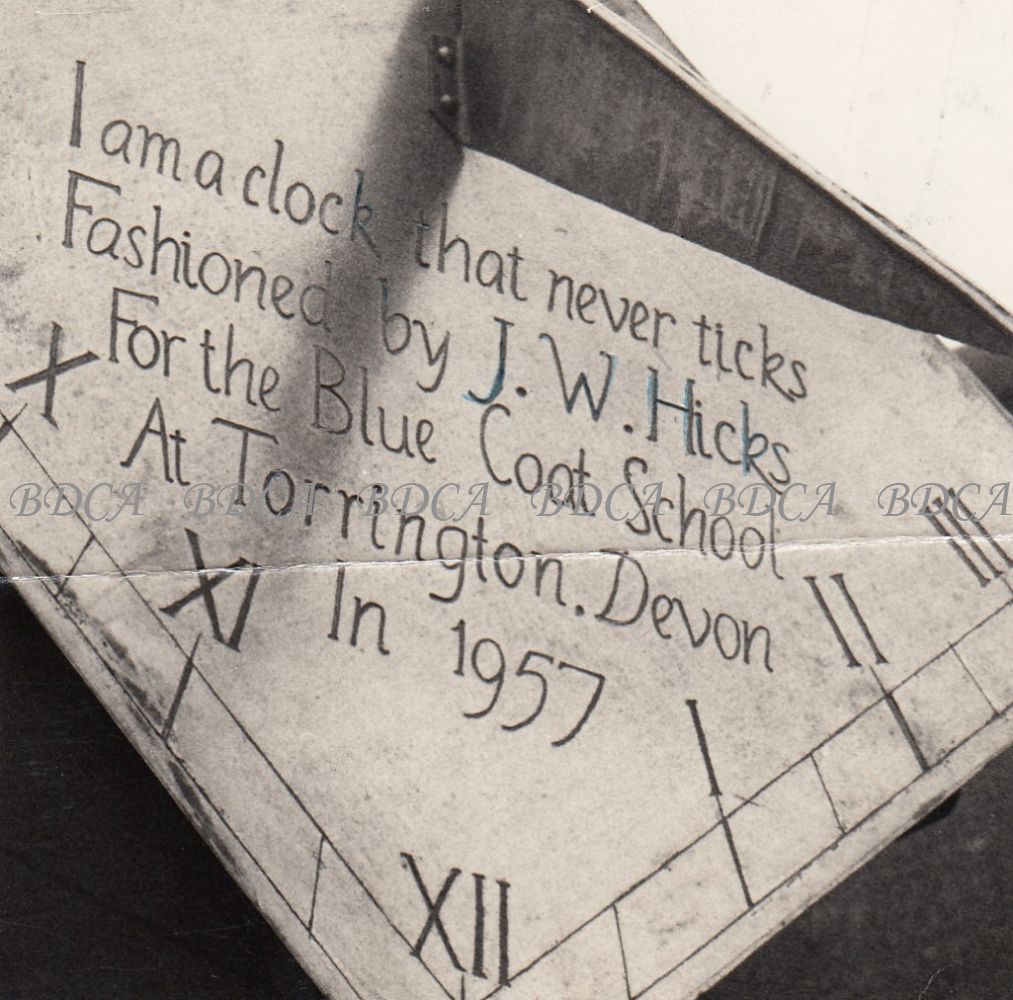 I am a clock that never ticks
Fashioned by J. W. Hicks
For the Blue Coat School
At Torrington. Devon
In 1957
X
XI
XII
I
II
III
BDCA BDCA BDCA BDCA BDCA BDCA